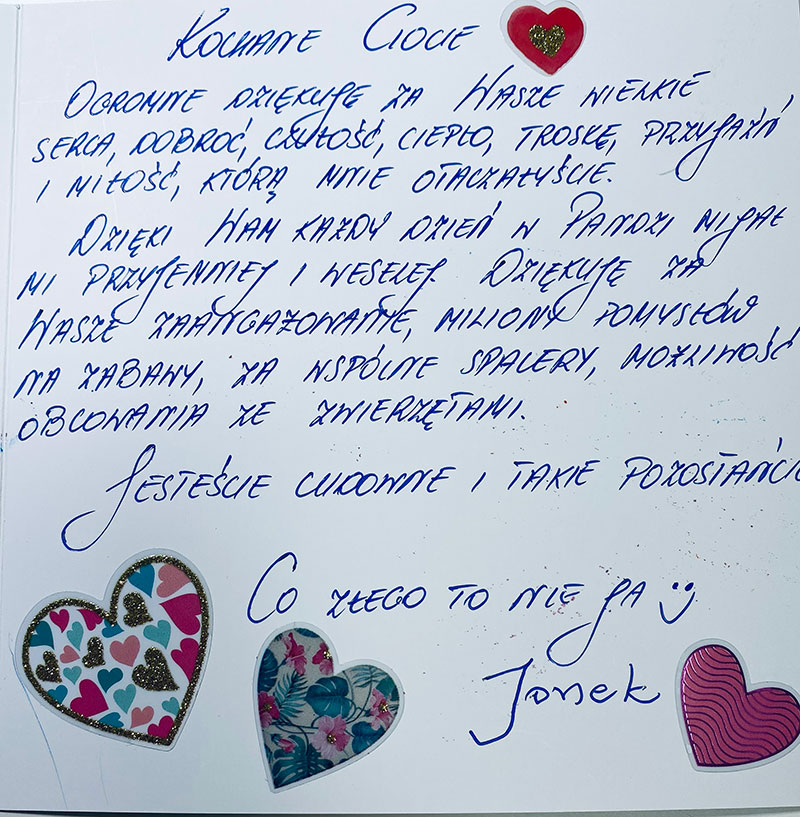 KOCHANE CIOCIE
OGROMNE DZIĘKUJĘ ZA WASZE WIELKIE
SERCA, DOBROĆ, CZUŁOŚĆ, CIEPŁO, TROSKĘ, PRZYJAŹŃ
I MIŁOŚĆ, KTÓRĄ MNIE OTACZAŁYŚCIE.
DZIĘKI WAM KAŻDY DZIEŃ W PANDZI MIJAŁ
MI PRZYJEMNIEJ I WESELEJ. DZIĘKUJĘ ZA
WASZE ZAANGAŻOWANIE, MILIONY POMYSŁÓW
NA ZABAWY, ZA WSPÓLNE SPACERY, MOŻLIWOŚĆ
OBCOWANIA ZE ZWIERZĘTAMI.
JESTEŚCIE CUDOWNE I TAKIE POZOSTAŃCIE
CO ZŁEGO TO NIE JA :)
Janek